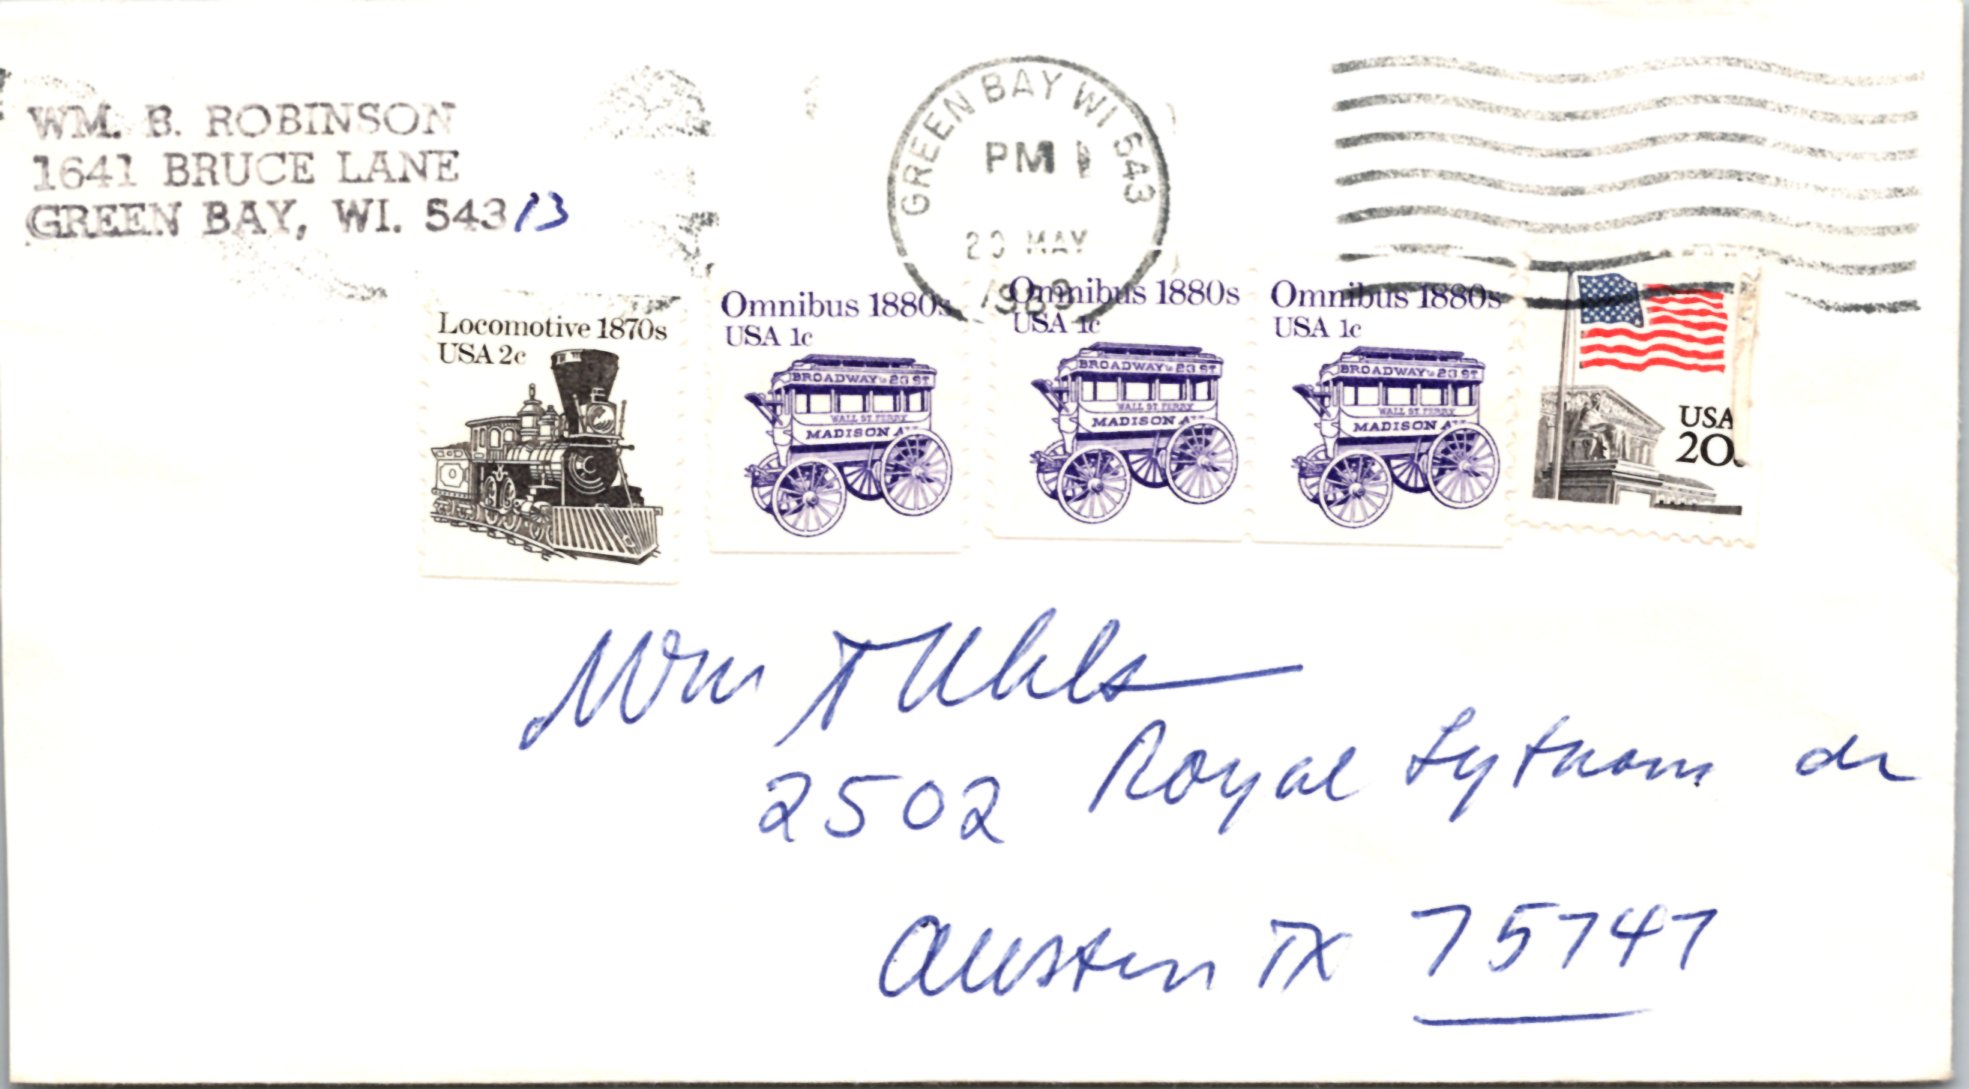 WM. B. ROBINSON
1641 BRUCE LANE
GREEN BAY, WI. 54313
GREEN BAY WI 543
PM
20 MAY
1989
Locomotive 1870s
USA 2c
Omnibus 1880s
USA 1c
BROADWAY to 23 ST.
WALL ST. FERRY
MADISON AV
Omnibus 1880s
USA 1c
BROADWAY to 23 ST.
WALL ST. FERRY
MADISON A
Omnibus 1880s
USA 1c
BROADWAY to 23 ST.
WALL ST. FERRY
MADISON A
USA
20c
Wm T Uhls
2502 Royal Lytham dr
Austin TX 75747